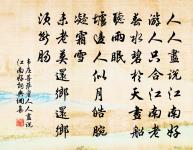 人人盡說江南好
游人只合江南老
春水碧於天畫船
聽雨眠
壚邊人似月皓腕
凝霜雪
未老莫還鄉還鄉
須斷腸
韋莊菩薩蠻人人盡說
江南好